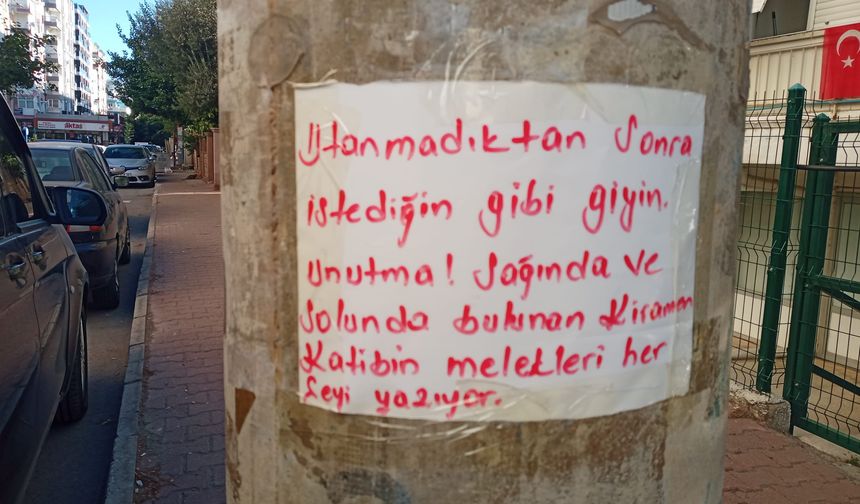 Utanmadıktan Sonra
istediğin gibi giyin.
Unutma! Sağında ve
Solunda bulunan Kiramen
Katibin melekleri her
Şeyi yazıyor.
aktaş